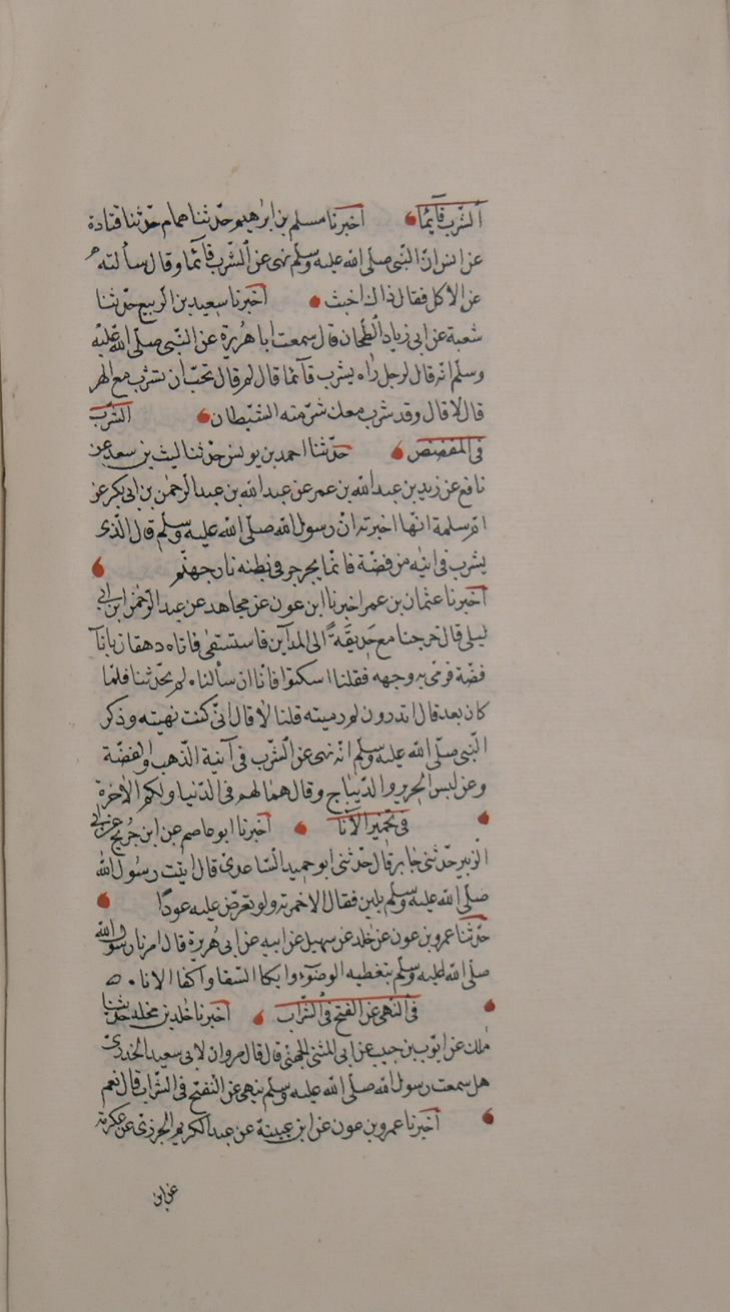 الشرب قآئما أخبرنا مسلم بن ابرٰهيم حدثنا همام حدثنا قتادة
عن انس ان النبى صلى الله عليه وسلم نهى عن الشرب قآئما وقال سألته
عن الاكل فقال ذاك اخبث أخبرنا سعيد بن الربيع حدثنا
شعبة عن ابى زياد الطحان قال سمعت ابا هريرة عن النبى صلى الله عليه
وسلم انه قال لرجل رآه يشرب قآئما قال لم قال تحب ان تشرب مع الهر
قال لا قال وقد شرب معك شر منه الشيطان الشرب
فى المفضض حدثنا احمد بن يونس حدثنا ليث بن سعد عن
نافع عن زيد بن عبد الله بن عمر عن عبد الله بن عبد الرحمٰن بن ابى بكر عن
ام سلمة انها اخبرته ان رسول الله صلى الله عليه وسلم قال الذى
يشرب فى انيه من فضة فانما يجرجر فى بطنه نار جهنم
أخبرنا عثمان بن عمر اخبرنا ابن عون عن مجاهد عن عبد الرحمٰن ابن ابى
ليلى قال خرجنا مع حذيفة الى المدآين فاستسقى فاتاه دهقان بانآ
فضة فرمى به وجهه فقلنا اسكتوا فانا ان سألناه لم يحدثنا فلما
كان بعد قال اتدرون لم رميته قلنا لا قال انى كنت نهيته وذكر
النبى صلى الله عليه وسلم انه نهى عن الشرب فى آنية الذهب والفضة
وعن لبس الحرير والديباج وقال هما لهم فى الدنيا ولكم الاخرة
فى تخمير الانآ أخبرنا ابو عاصم عن ابن جريج عن ابى
الزبير حدثنى جابر قال حدثنى ابو حميد الساعدى قال اتيت رسول الله
صلى الله عليه وسلم بلبن فقال الا خمرته ولو تعرض عليه عودًا
حدثنا عمرو بن عون عن خلد عن سهيل عن ابيه عن ابى هريرة قال امرنا رسول الله
صلى الله عليه وسلم بتغطيه الوضوء وايكا السقا واكفا الانا
فى النهى عن النفخ فى الشراب أخبرنا خلد بن مخلد حدثنا
ملك عن ايوب بن حبيب عن ابى المثنى الجهنى قال قال مروان لابى سعيد الخدرى
هل سمعت رسول الله صلى الله عليه وسلم ينهى عن النفخ فى الشراب قال نعم
أخبرنا عمرو بن عون عن ابن عيينة عن عبد الكريم الجزرى عن عكرمة
عن ابن